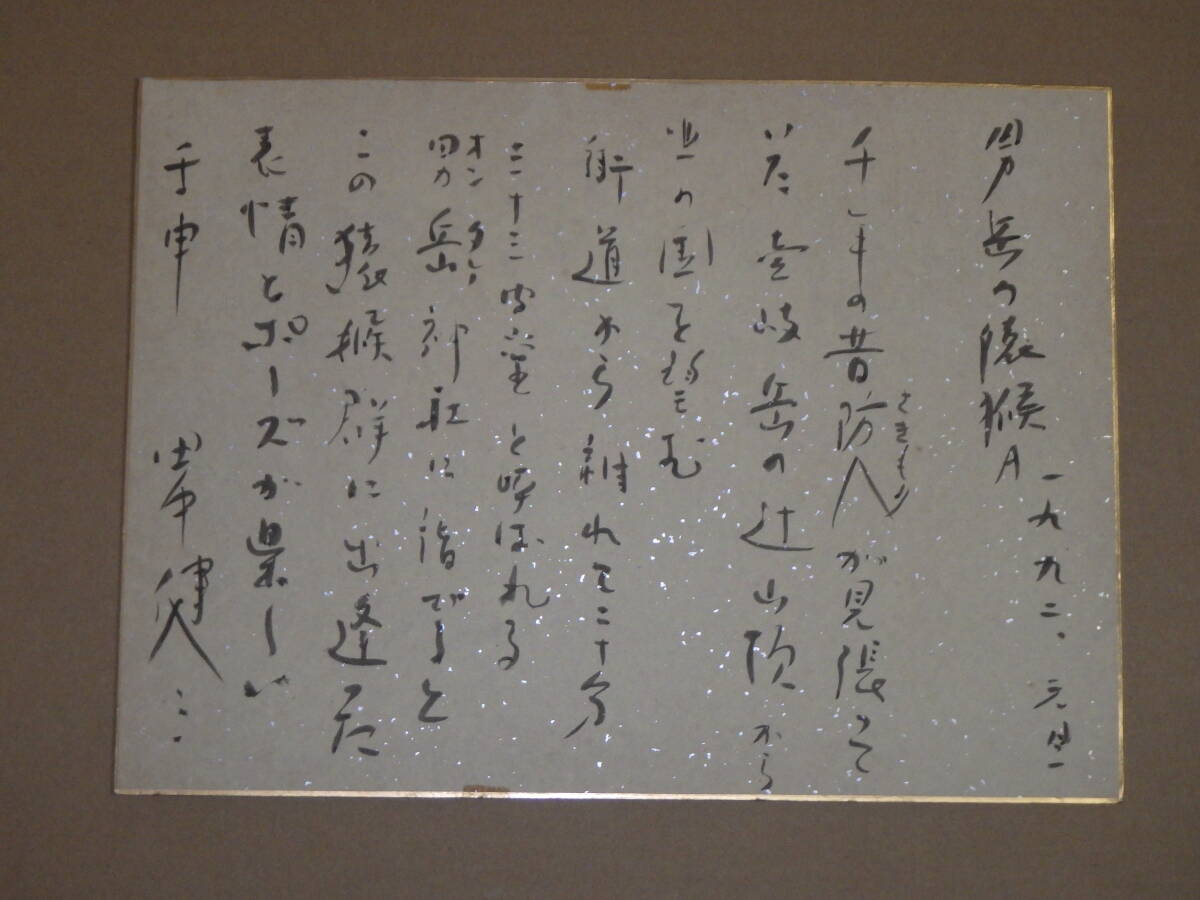 男岳の猿猴A
一九九二、元旦
千年の昔防人が見張って
さきもり
いた壱岐岳の辻山頂から
の国を望む
街道から離れて二十分
三十三と呼ばれる
男岳神社に詣でると
オンダケ
この猿猴群に出逢った
表情とポーズが楽しい
壬申